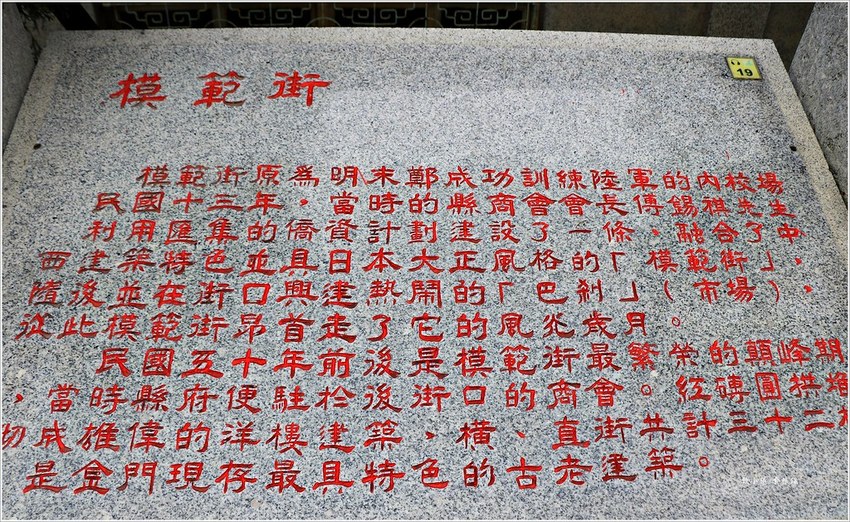 模範街
19
模範街原為明末鄭成功訓練陸軍的內校場
民國十三年，當時的縣商會會長傅錫祺先生
利用匯集的僑資計劃建設了一條、融合了中
西建築特色並具日本大正風格的「模範街」，
隨後並在街口興建熱鬧的「巴剎」（市場），
從此模範街昂首走了它的風光歲月。
民國五十年前後是模範街最繁榮的顛峰期
，當時縣府便駐於後街口的商會。紅磚圓拱堆
切成雄偉的洋樓建築，橫、直街共計三十二
是金門現存最具特色的古老建築。